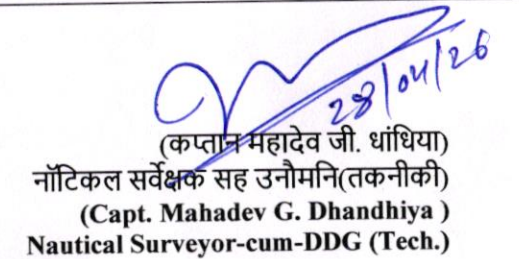 28/04/26
(कप्तान महादेव जी. धांधिया)
नॉटिकल सर्वेक्षक सह उनौमनि(तकनीकी)
(Capt. Mahadev G. Dhandhiya )
Nautical Surveyor-cum-DDG (Tech.)